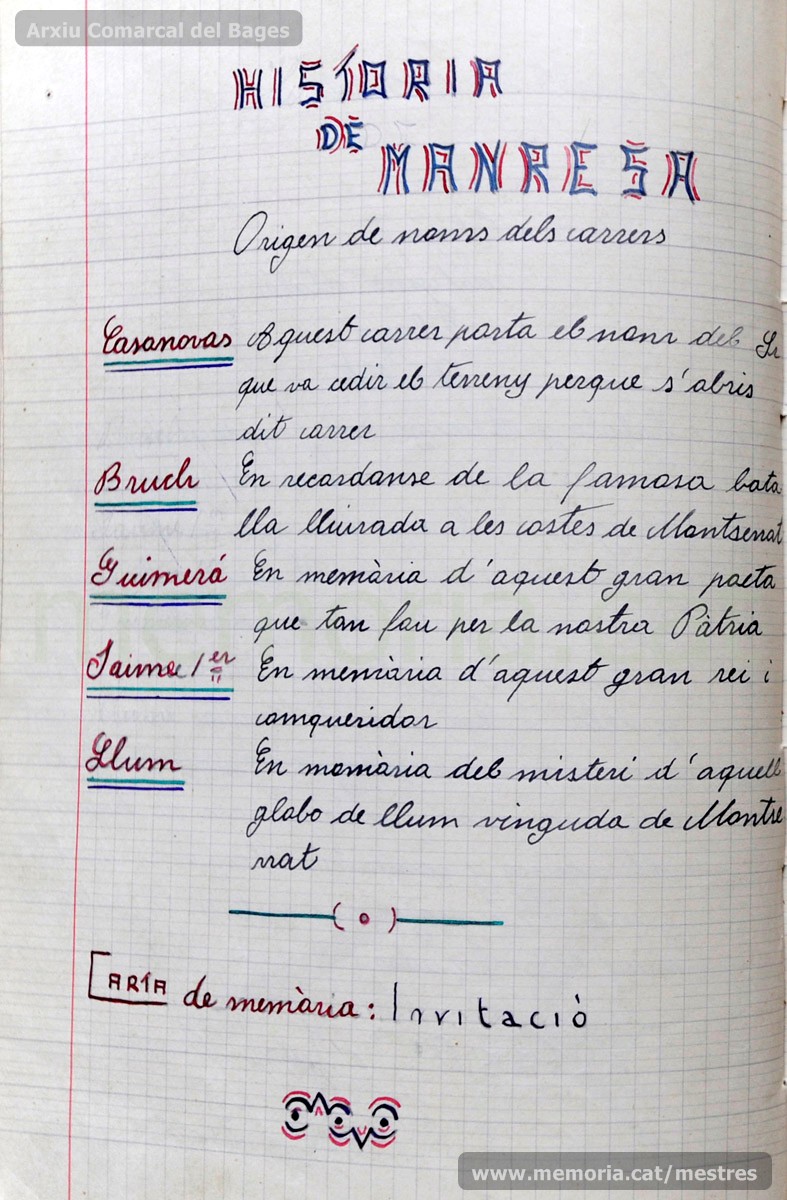 Arxiu Comarcal del Bages
HISTORIA
DE
MANRESA
Origen de noms dels carrers
Casanovas Aquest carrer porta el nom del Sr
que va cedir el terreny perque s'abris
dit carrer
Bruch En recordanse de la famosa bata
lla lliurada a les costes de Montserrat
Guimerá En memòria d'aquest gran poeta
que tan fou per la nostra Pàtria
Jaime 1er En memòria d'aquest gran rei i
conqueridor
Llum En memòria del misteri d'aquell
globo de llum vinguda de Montse
rrat
CARTA de memòria: Invitació
www.memoria.cat/mestres